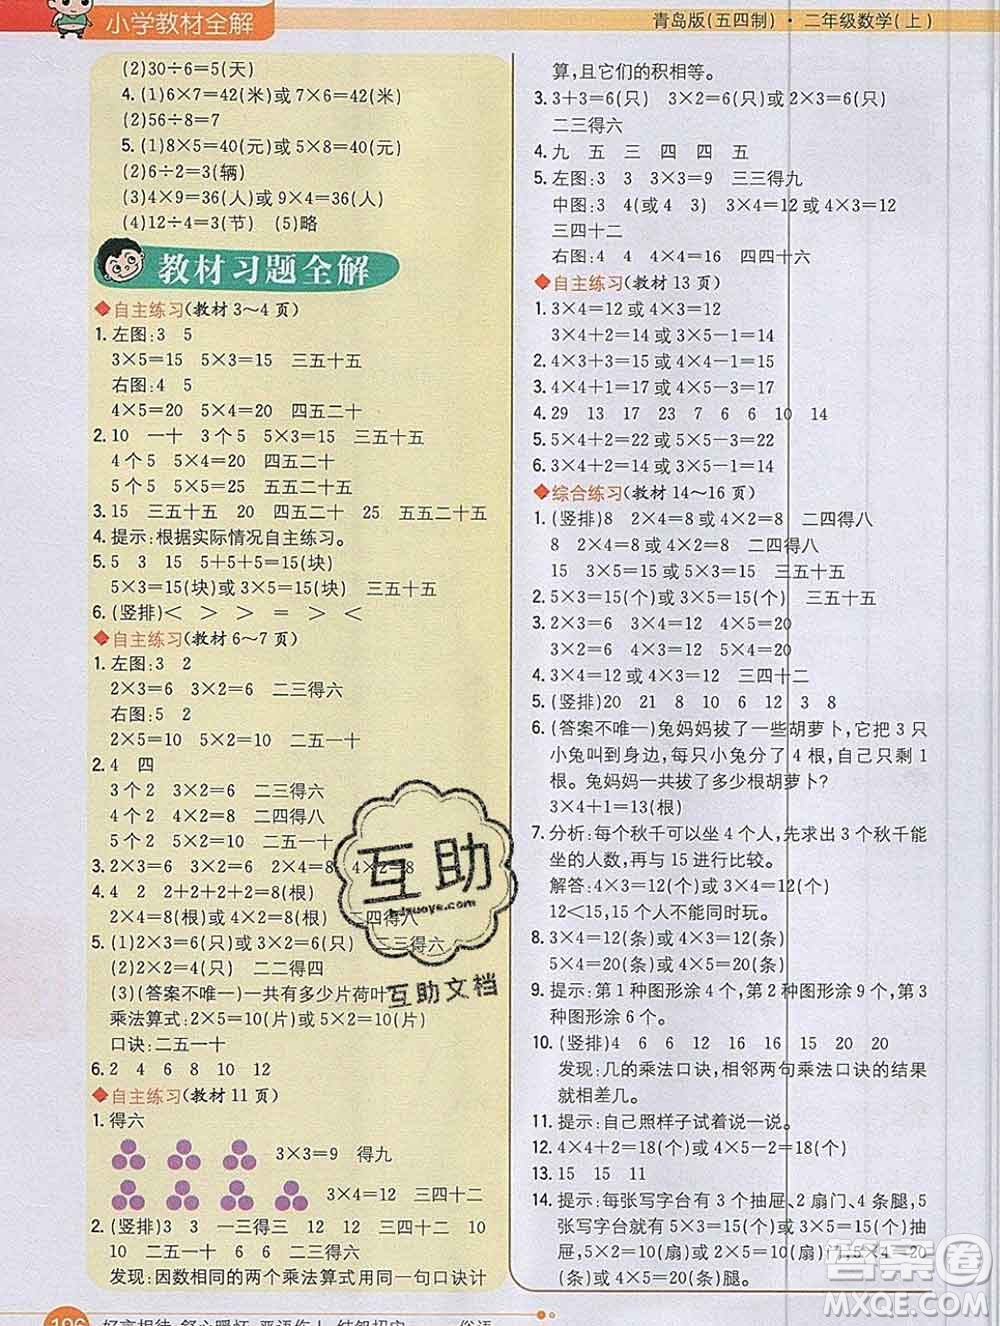 小学教材全解
青岛版(五四制)·二年级数学(上)
(2)30÷6=5(天)
4. (1)6×7=42(米)或7×6=42(米)
(2)56÷8=7
5. (1)8×5=40(元)或5×8=40(元)
(2)6÷2=3(辆)
(3)4×9=36(人)或9×4=36(人)
(4)12÷4=3(节) (5)略
教材习题全解
◆自主练习(教材3~4页)
1. 左图:3 5
3×5=15 5×3=15 三五十五
右图:4 5
4×5=20 5×4=20 四五二十
2. 10 一十 3个5 5×3=15 三五十五
4个5 5×4=20 四五二十
5个5 5×5=25 五五二十五
3. 15 三五十五 20 四五二十 25 五五二十五
4. 提示:根据实际情况自主练习。
5. 5 3 15 5+5+5=15(块)
5×3=15(块)或3×5=15(块) 三五十五
6. (竖排)< > > = > <
◆自主练习(教材6~7页)
1. 左图:3 2
2×3=6 3×2=6 二三得六
右图:5 2
2×5=10 5×2=10 二五一十
2. 4 四
3个2 3×2=6 二三得六
4个2 4×2=8 二四得八
5个2 5×2=10 二五一十
3. 2×3=6 3×2=6 2×4=8 4×2=8
4. 4 2 2+2+2+2=8(根)
2×4=8(根)或4×2=8(根) 二四得八
5. (1)2×3=6(只)或3×2=6(只) 二三得六
(2)2×2=4(只) 二二得四
(3)(答案不唯一)一共有多少片荷叶
乘法算式:2×5=10(片)或5×2=10(片)
口诀:二五一十
6. 2 4 6 8 10 12
◆自主练习(教材11页)
1. 得六
3×3=9 得九
3×4=12 三四十二
2. (竖排)3 3 一三得三 12 12 三四十二 10
10 二五一十 6 6 二三得六
发现:因数相同的两个乘法算式用同一句口诀计
算,且它们的积相等。
3. 3+3=6(只) 3×2=6(只)或2×3=6(只)
二三得六
4. 九 五 三 四 四 五
5. 左图:3 3 3×3=9 三三得九
中图:3 4(或4 3) 3×4=12或4×3=12
三四十二
右图:4 4 4×4=16 四四十六
◆自主练习(教材13页)
1. 3×4=12或4×3=12
3×4+2=14或3×5-1=14
2. 4×3+3=15或4×4-1=15
3. 4×4+1=17或4×5-3=17
4. 29 13 17 23 7 6 6 10 14
5. 5×4+2=22或5×5-3=22
6. 3×4+2=14或3×5-1=14
◆综合练习(教材14~16页)
1. (竖排)8 2×4=8或4×2=8 二四得八
8 2×4=8或4×2=8 二四得八
15 3×5=15或5×3=15 三五十五
2. 5×3=15(个)或3×5=15(个) 三五十五
3. 2×3=6 3×2=6 4×5=20
3×2=6 4×3=12 5×4=20
4. 3×4=12或4×3=12 三四十二
5. (竖排)20 21 8 10 6 12 3 8
6. (答案不唯一)兔妈妈拔了一些胡萝卜,它把3只
小兔叫到身边,每只小兔分了4根,自己只剩1
根。兔妈妈一共拔了多少根胡萝卜?
3×4+1=13(根)
7. 分析:每个秋千可以坐4个人,先求出3个秋千能
坐的人数,再与15进行比较。
解答:4×3=12(个)或3×4=12(个)
12<15,15个人不能同时玩。
8. 3×4=12(条)或4×3=12(条)
5×4=20(条)或4×5=20(条)
9. 提示:第1种图形涂4个,第2种图形涂9个,第3
种图形涂6个。
10. (竖排)4 6 6 12 16 16 15 20 20
发现:几的乘法口诀,相邻两句乘法口诀的结果
就相差几。
11. 提示:自己照样子试着说一说。
12. 4×4+2=18(个)或4×5-2=18(个)
13. 15 15 11
14. 提示:每张写字台有3个抽屉、2扇门、4条腿,5
张写字台就有5×3=15(个)或3×5=15(个)抽
屉,5×2=10(扇)或2×5=10(扇)门,5×4=20
(条)或4×5=20(条)腿。
互助
hdzuoye.com
互助文档
答案圈
MXQE.COM